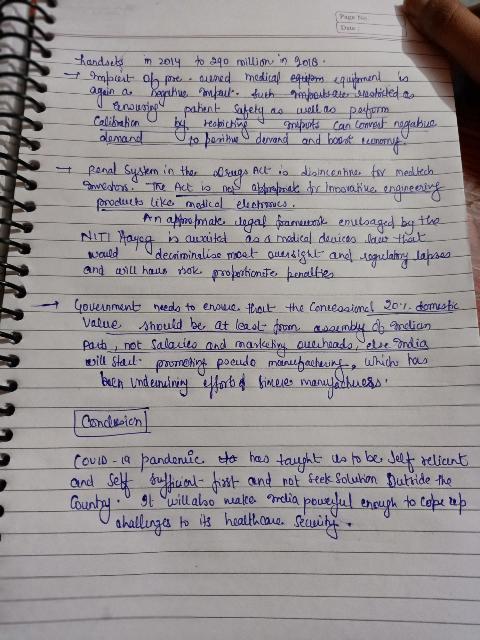 Page No.
Date
handsets in 2014 to 290 million in 2018.
→ Import of pre-owned medical equipment is
again a negative impact. Such imports are restricted as
ensuring patient safety as well as perform
Calibration by restricting imports can convert negative
demand to positive demand and boost economy.
→ Penal System in the Drugs Act is disincentive for medtech
investors. The Act is not appropriate for innovative engineering
products like medical electronics.
An appropriate legal framework envisaged by the
NITI Aayog is awaited as a medical devices law that
would decriminalise most oversight and regulatory lapses
and will have risk proportionate penalties
→ Government needs to ensure that the Concessional 20%. domestic
Value should be at least from assembly of Indian
Parts, not Salaries and marketing overheads, else India
will start promoting pseudo manufacturing, which has
been undermining efforts of sincere manufacturers.
Conclusion
COVID-19 pandemic has taught us to be Self relient
and Self sufficient first and not seek solution outside the
Country. It will also make India powerful enough to cope up
challenges to its healthcare security.